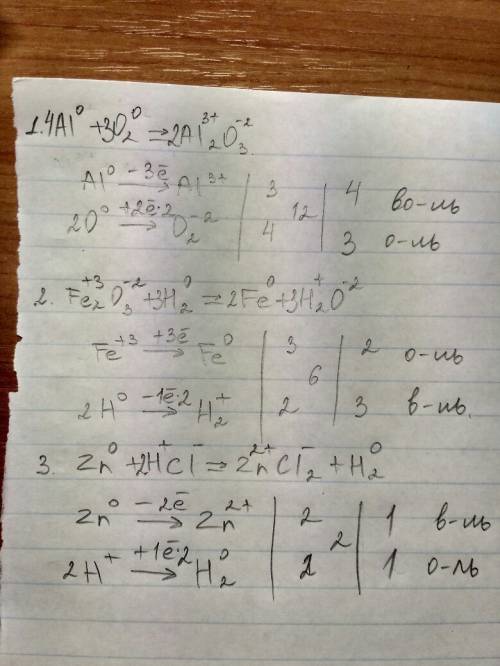 1. 4Al⁰ + 3O₂⁰ ⇒ 2Al₂³⁺O₃⁻²
Al⁰ –3ē→ Al³⁺ | 3 | 4 во-ль
12
2O⁰ +2ē·2→ O₂⁻² | 4 | 3 о-ль
2. Fe₂⁺³O₃⁻² + 3H₂⁰ ⇒ 2Fe⁰ + 3H₂⁺O⁻²
Fe⁺³ +3ē→ Fe⁰ | 3 | 2 о-ль
6
2H⁰ –1ē·2→ H₂⁺ | 2 | 3 в-ль.
3. Zn⁰ + 2H⁺Cl⁻ ⇒ Zn²⁺Cl₂⁻ + H₂⁰
Zn⁰ –2ē→ Zn²⁺ | 2 | 1 в-ль
2
2H⁺ +1ē·2→ H₂⁰ | 2 | 1 о-ль